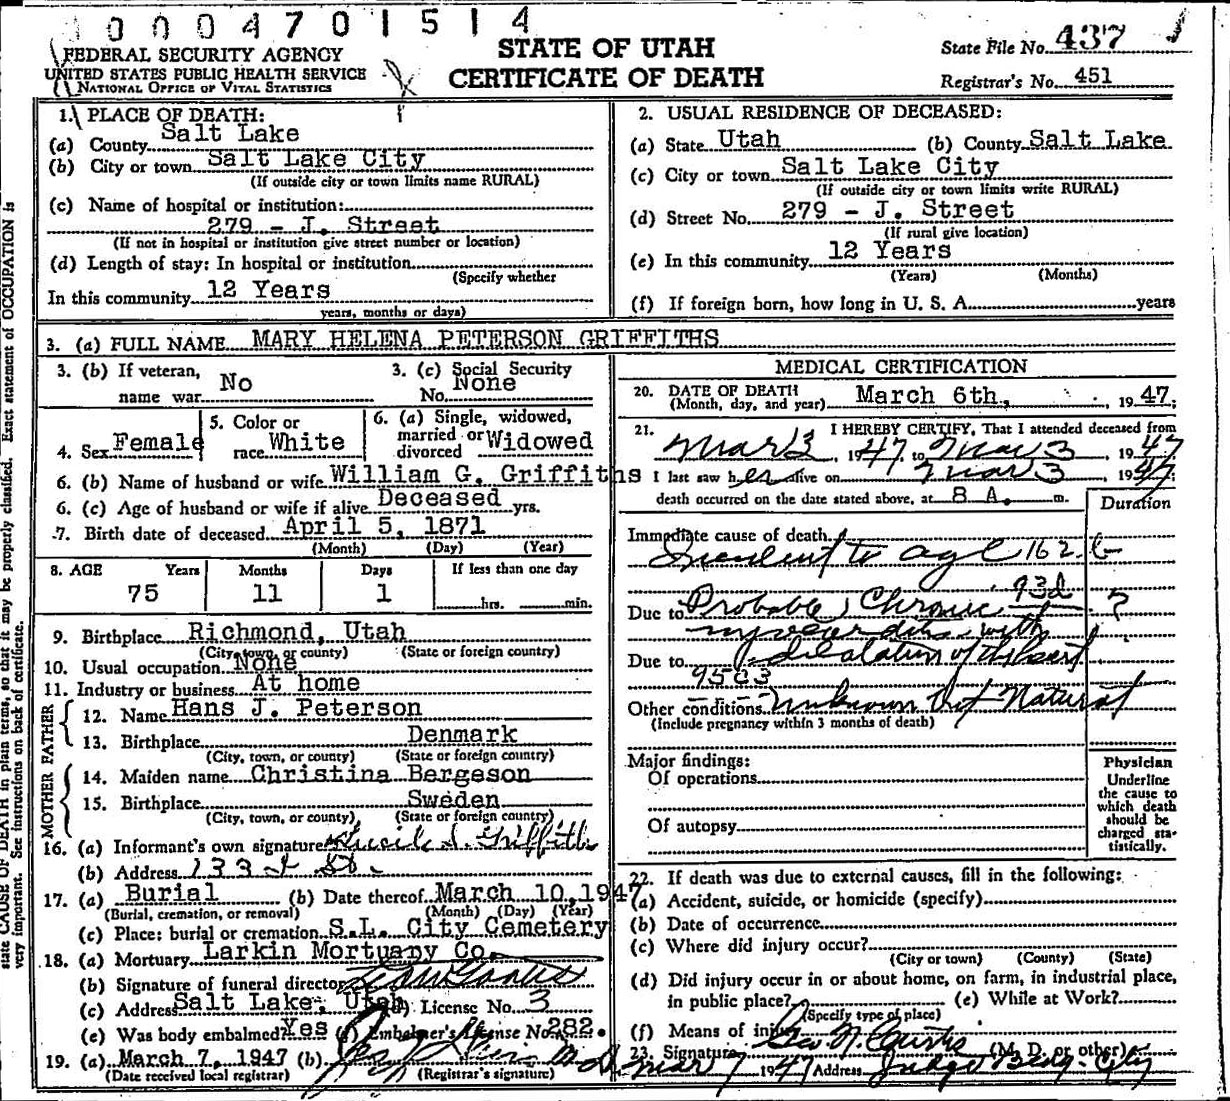 0004701514
FEDERAL SECURITY AGENCY
UNITED STATES PUBLIC HEALTH SERVICE
NATIONAL OFFICE OF VITAL STATISTICS
STATE OF UTAH
CERTIFICATE OF DEATH
State File No. 437
Registrar's No. 451
1. PLACE OF DEATH:
(a) County Salt Lake
(b) City or town Salt Lake City
(If outside city or town limits name RURAL)
(c) Name of hospital or institution:
279 - J. Street
(If not in hospital or institution give street number or location)
(d) Length of stay: In hospital or institution
(Specify whether
In this community 12 Years
years, months or days)
2. USUAL RESIDENCE OF DECEASED:
(a) State Utah (b) County Salt Lake
(c) City or town Salt Lake City
(If outside city or town limits write RURAL)
(d) Street No. 279 - J. Street
(If rural give location)
(e) In this community 12 Years
(Years) (Months)
(f) If foreign born, how long in U. S. A. years
3. (a) FULL NAME MARY HELENA PETERSON GRIFFITHS
3. (b) If veteran, name war No
3. (c) Social Security No. None
4. Sex Female
5. Color or race White
6. (a) Single, widowed, married or divorced Widowed
6. (b) Name of husband or wife William G. Griffiths
6. (c) Age of husband or wife if alive Deceased yrs.
7. Birth date of deceased April 5, 1871
(Month) (Day) (Year)
8. AGE Years Months Days If less than one day
75 11 1 hrs. min.
9. Birthplace Richmond, Utah
(City, town, or county) (State or foreign country)
10. Usual occupation None
11. Industry or business At home
FATHER
12. Name Hans J. Peterson
13. Birthplace Denmark
(City, town, or county) (State or foreign country)
MOTHER
14. Maiden name Christina Bergeson
15. Birthplace Sweden
(City, town, or county) (State or foreign country)
16. (a) Informant's own signature Lucile S. Griffith
(b) Address 133 St.
17. (a) Burial (b) Date thereof March 10, 1947
(Burial, cremation, or removal) (Month) (Day) (Year)
(c) Place: burial or cremation S.L. City Cemetery
18. (a) Mortuary Larkin Mortuary Co.
(b) Signature of funeral director
(c) Address Salt Lake, Utah (d) License No. 3
(e) Was body embalmed? Yes (f) Embalmer's License No. 282.
19. (a) March 7, 1947 (b)
(Date received local registrar) (Registrar's signature)
MEDICAL CERTIFICATION
20. DATE OF DEATH March 6th, , 1947.
(Month, day, and year)
21. I HEREBY CERTIFY, That I attended deceased from
Mar 3, 1947, to Mar 3, 1947
I last saw her alive on Mar 3 1947
death occurred on the date stated above, at 8 A. m.
Duration
Immediate cause of death
Incident to age 162 b
93d
Due to Probable, Chronic ?
myocarditis with
Due to dilatation of the heart
95c3
Other conditions unknown but Natural
(Include pregnancy within 3 months of death)
Major findings:
Of operations
Of autopsy
Physician
Underline
the cause to
which death
should be
charged sta-
tistically.
22. If death was due to external causes, fill in the following:
(a) Accident, suicide, or homicide (specify)
(b) Date of occurrence
(c) Where did injury occur?
(City or town) (County) (State)
(d) Did injury occur in or about home, on farm, in industrial place,
in public place? (e) While at Work?
(Specify type of place)
(f) Means of injury
23. Signature Geo N. Curtis (M. D. or other)
Mar 7 1947 Address Judge Bldg. City
state CAUSE OF DEATH in plain terms, so that it may be properly classified. Exact statement of OCCUPATION is
very important. See instructions on back of certificate.